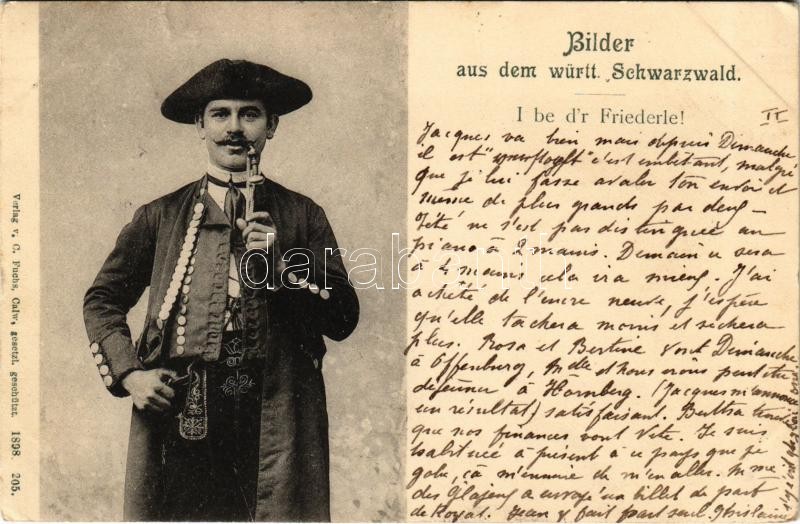 Bilder
aus dem württ. Schwarzwald.
I be d'r Friederle!
II
Jacques va bien mais depuis Dimanche
il est c'est embêtant, malgré
que je lui fasse avaler ton envoi et
même de plus grands par deux
été ne s'est pas distinguée au
piano à 2 mains. Demain ce sera
à 4 mains cela ira mieux. J'ai
acheté de l'encre neuve, j'espère
qu'elle tachera moins et séchera
plus. Rosa et Bertine vont Dimanche
à Offenburg, Mlle et nous irons peut-être
déjeuner à Hornberg. (Jacques m'annonce
un résultat) satisfaisant. Bertha
que nos finances vont vite. Je suis
habituée à présent à ce pays que je
gobe, çà m'ennuie de m'en aller.
des a envoyé un billet de part
de Royat. Jean y fait part seul. Ghislaine
Verlag v. C. Fuchs, Calw, gesetzl. geschützt. 1898. 205.
darabanth